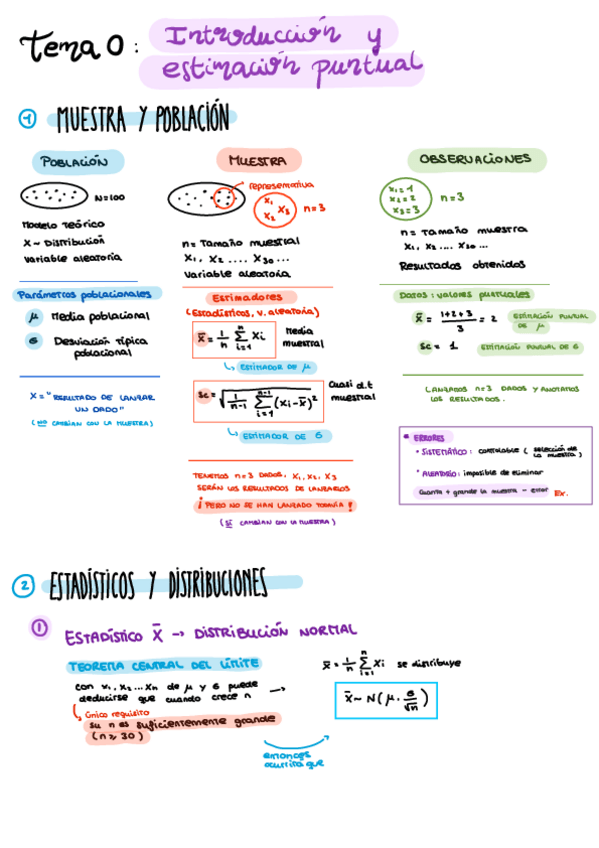 Tema 0: Introducción y
estimación puntual
1 MUESTRA Y POBLACIÓN
POBLACIÓN
N=100
Modelo teórico
X ~ Distribución
Variable aleatoria
Parámetros poblacionales
μ Media poblacional
σ Desviación típica
poblacional
X = "RESULTADO DE LANZAR
UN DADO"
(NO CAMBIAN CON LA MUESTRA)
MUESTRA
representativa
x₁ x₂ x₃
n=3
n = Tamaño muestral
X₁, X₂ .... X₃₀ ...
Variable aleatoria
Estimadores
(Estadísticos, v. aleatoria)
x̄ = 1/n Σ(i=1, n) Xi
Media
muestral
ESTIMADOR DE μ
Sc = √(1/(n-1) Σ(i=1, n-1) (Xi - x̄)²)
Cuasi d.t
muestral
ESTIMADOR DE σ
TENEMOS n=3 DADOS, X₁, X₂, X₃
SERÁN LOS RESULTADOS DE LANZARLOS
¡PERO NO SE HAN LANZADO TODAVÍA!
(SÍ CAMBIAN CON LA MUESTRA)
OBSERVACIONES
x₁=1
x₂=2
x₃=3
n=3
n = Tamaño muestra
X₁, X₂ .... X₃₀ ...
Resultados obtenidos
DATOS: VALORES PUNTUALES
x̄ = (1+2+3)/3 = 2
ESTIMACIÓN PUNTUAL
DE μ
Sc = 1 ESTIMACIÓN PUNTUAL DE σ
LANZAMOS n=3 DADOS Y ANOTAMOS
LOS RESULTADOS.
* ERRORES
• SISTEMÁTICO: controlable (selección de
la muestra)
• ALEATORIO: imposible de eliminar
Cuanta + grande la muestra - error Ex.
2 ESTADÍSTICOS Y DISTRIBUCIONES
1 ESTADÍSTICO X̄ → DISTRIBUCIÓN NORMAL
TEOREMA CENTRAL DEL LÍMITE
con x₁, x₂ ... xn de μ y σ puede
deducirse que cuando crece n →
único requisito
su n es suficientemente grande
(n ≥ 30)
entonces
ocurrirá que
x̄ = 1/n Σ(i=1, n) Xi se distribuye
x̄ ~ N(μ, σ/√n)